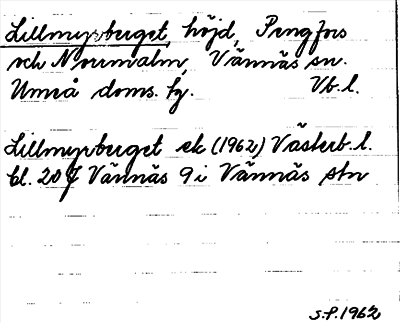 Lillmyrberget, höjd, Pengfors
och Norrmalm, Vännäs sn.
Umeå doms. tg. Vb.l.
Lillmyrberget ek (1962) Västerb. l.
bl. 207 Vännäs 9 i Vännäs stn
S.P. 1962